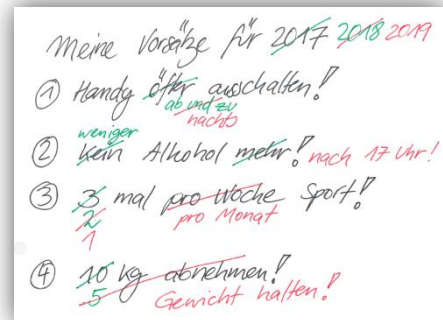 Meine Vorsätze für 2017 2018 2019
① Handy öfter ausschalten!
ab und zu
nachts
weniger
② Kein Alkohol mehr! nach 17 Uhr!
③ 3 mal pro Woche Sport!
2 pro Monat
1
④ 10 kg abnehmen!
5 Gewicht halten!